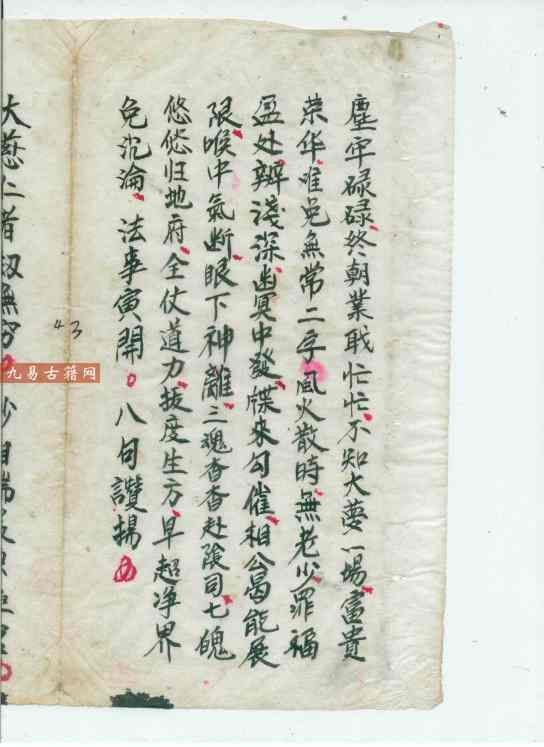 塵牢碌碌终朝業戝忙忙不知大夢一場富貴
荣华难免無常二字風火散時無老少罪福
盈处辨淺深幽冥中發牒來勾催相公曷能展
限喉中氣断眼下神離三魂杳杳赴陰司七魄
悠悠归地府全仗道力拔度生方早超净界
免沉淪法事寅開八句讚揚
43
大慈仁者 無穷
九易古籍网